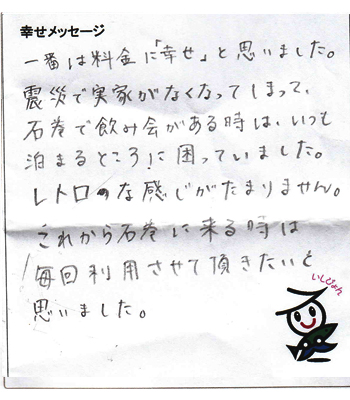 幸せメッセージ
一番は料金に「幸せ」と思いました。
震災で実家がなくなってしまって、
石巻で飲み会がある時は、いつも
泊まるところに困っていました。
レトロな感じがたまりません。
これから石巻に来る時は
毎回利用させて頂きたいと
思いました。
いしぴょん